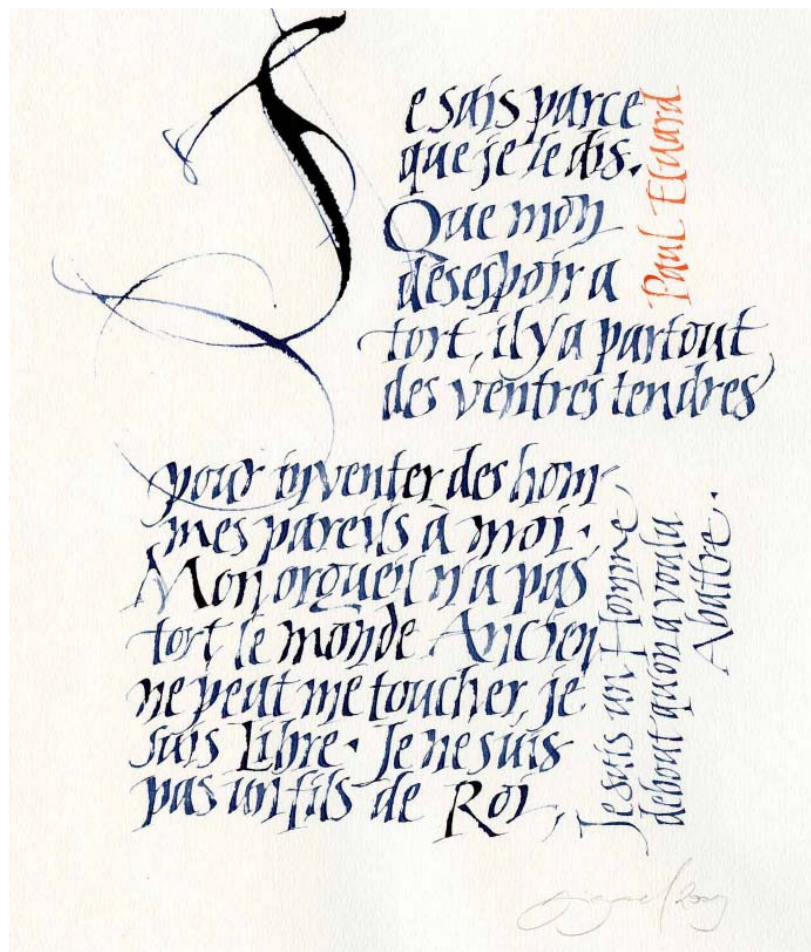 Je sais parce
que je le dis.
Que mon
désespoir a
tort, il y a partout
des ventres tendres
pour inventer des hom-
mes pareils à moi.
Mon orgueil n'a pas
tort le monde Ancien
ne peut me toucher, je
suis Libre. Je ne suis
pas un fils de Roi,
Je suis un Homme
debout qu'on a voulu
Abattre.
Paul Eluard